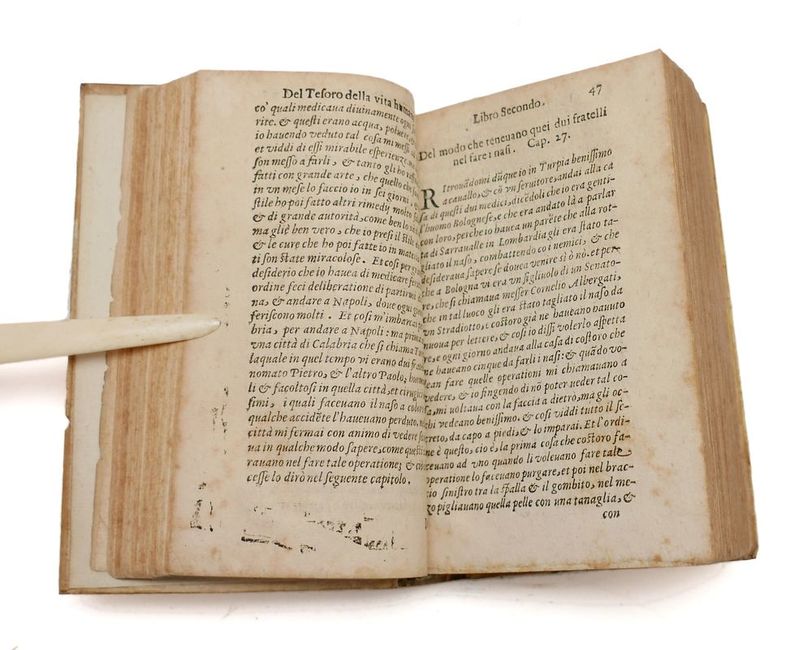 Del Tesoro della vita humana
co' quali medicaua diuinamente ogni
rite. & questi erano acqua,
io hauendo veduto tal cosa mi messi
et viddi di essi mirabile esperienze,
son messo a farli, & tanto gli ho
fatti con grande arte, che quello che
in vn mese lo faccio io in sei giorni,
stile ho poi fatto altri rimedij molto
& di grande autorità, come ben lo
ma gliè ben vero, che io presi il stile
& le cure che ho poi fatte io in
ti son state miracolose. Et cosi per
desiderio che io hauea di medicare
ordine feci deliberatione di partirmi
na, & andare a Napoli, doue ogni
feriscono molti. Et cosi m'imbarcai
bria, per andare a Napoli: ma prima
vna città di Calabria che si chiama
laquale in quel tempo vi erano dui
nomato Pietro, & l'altro Paolo,
li & facoltosi in quella città, et cirugici
simi, i quali faceuano il naso a coloro
qualche accidẽte l'haueuano perduto.
città mi fermai con animo di vedere
ua in qualche modo sapere, come questi
rauano nel fare tale operatione; &
cesse lo dirò nel seguente capitolo.
47
Libro Secondo.
Del modo che teneuano quei dui fratelli
nel fare i nasi. Cap. 27.
RItrouãdomi dũque io in Turpia benissimo
a cauallo, & cõ vn seruitore, andai alla ca
sa di questi dui medici, dicẽdoli che io era genti-
l'huomo Bolognese, e che era andato là a parlar
con loro, perche io hauea un parẽte che alla rot-
ta di Sarraualle in Lombardia gli era stato ta-
gliato il naso, combattendo co i nemici, & che
desideraua sapere se douea venire sì ò nò. et per
che a Bologna vi era vn figliuolo di un Senato-
re, che si chiamaua messer Cornelio Albergati,
che in tal luoco gli era stato tagliato il naso da
vn Stradiotto, e costoro già ne haueano hauuto
nuoua per lettere, & cosi io dissi volerlo aspetta
re, e ogni giorno andaua alla casa di costoro che
haueano cinque da farli i nasi: & quãdo vo-
lean fare quelle operationi mi chiamauano a
vedere, & io fingendo di nõ poter ueder tal co-
sa, mi uoltaua con la faccia a dietro, ma gli oc-
chi vedeano benissimo. & cosi viddi tutto il se-
creto, da capo a piedi, & lo imparai. Et l'ordi-
ne è questo, cio è, la prima cosa che costoro fa-
ceuano ad vno quando li voleuano fare tale
operatione lo faceuano purgare, et poi nel brac-
cio sinistro tra la spalla & il gombito, nel me-
zo pigliauano quella pelle con una tanaglia, &
con